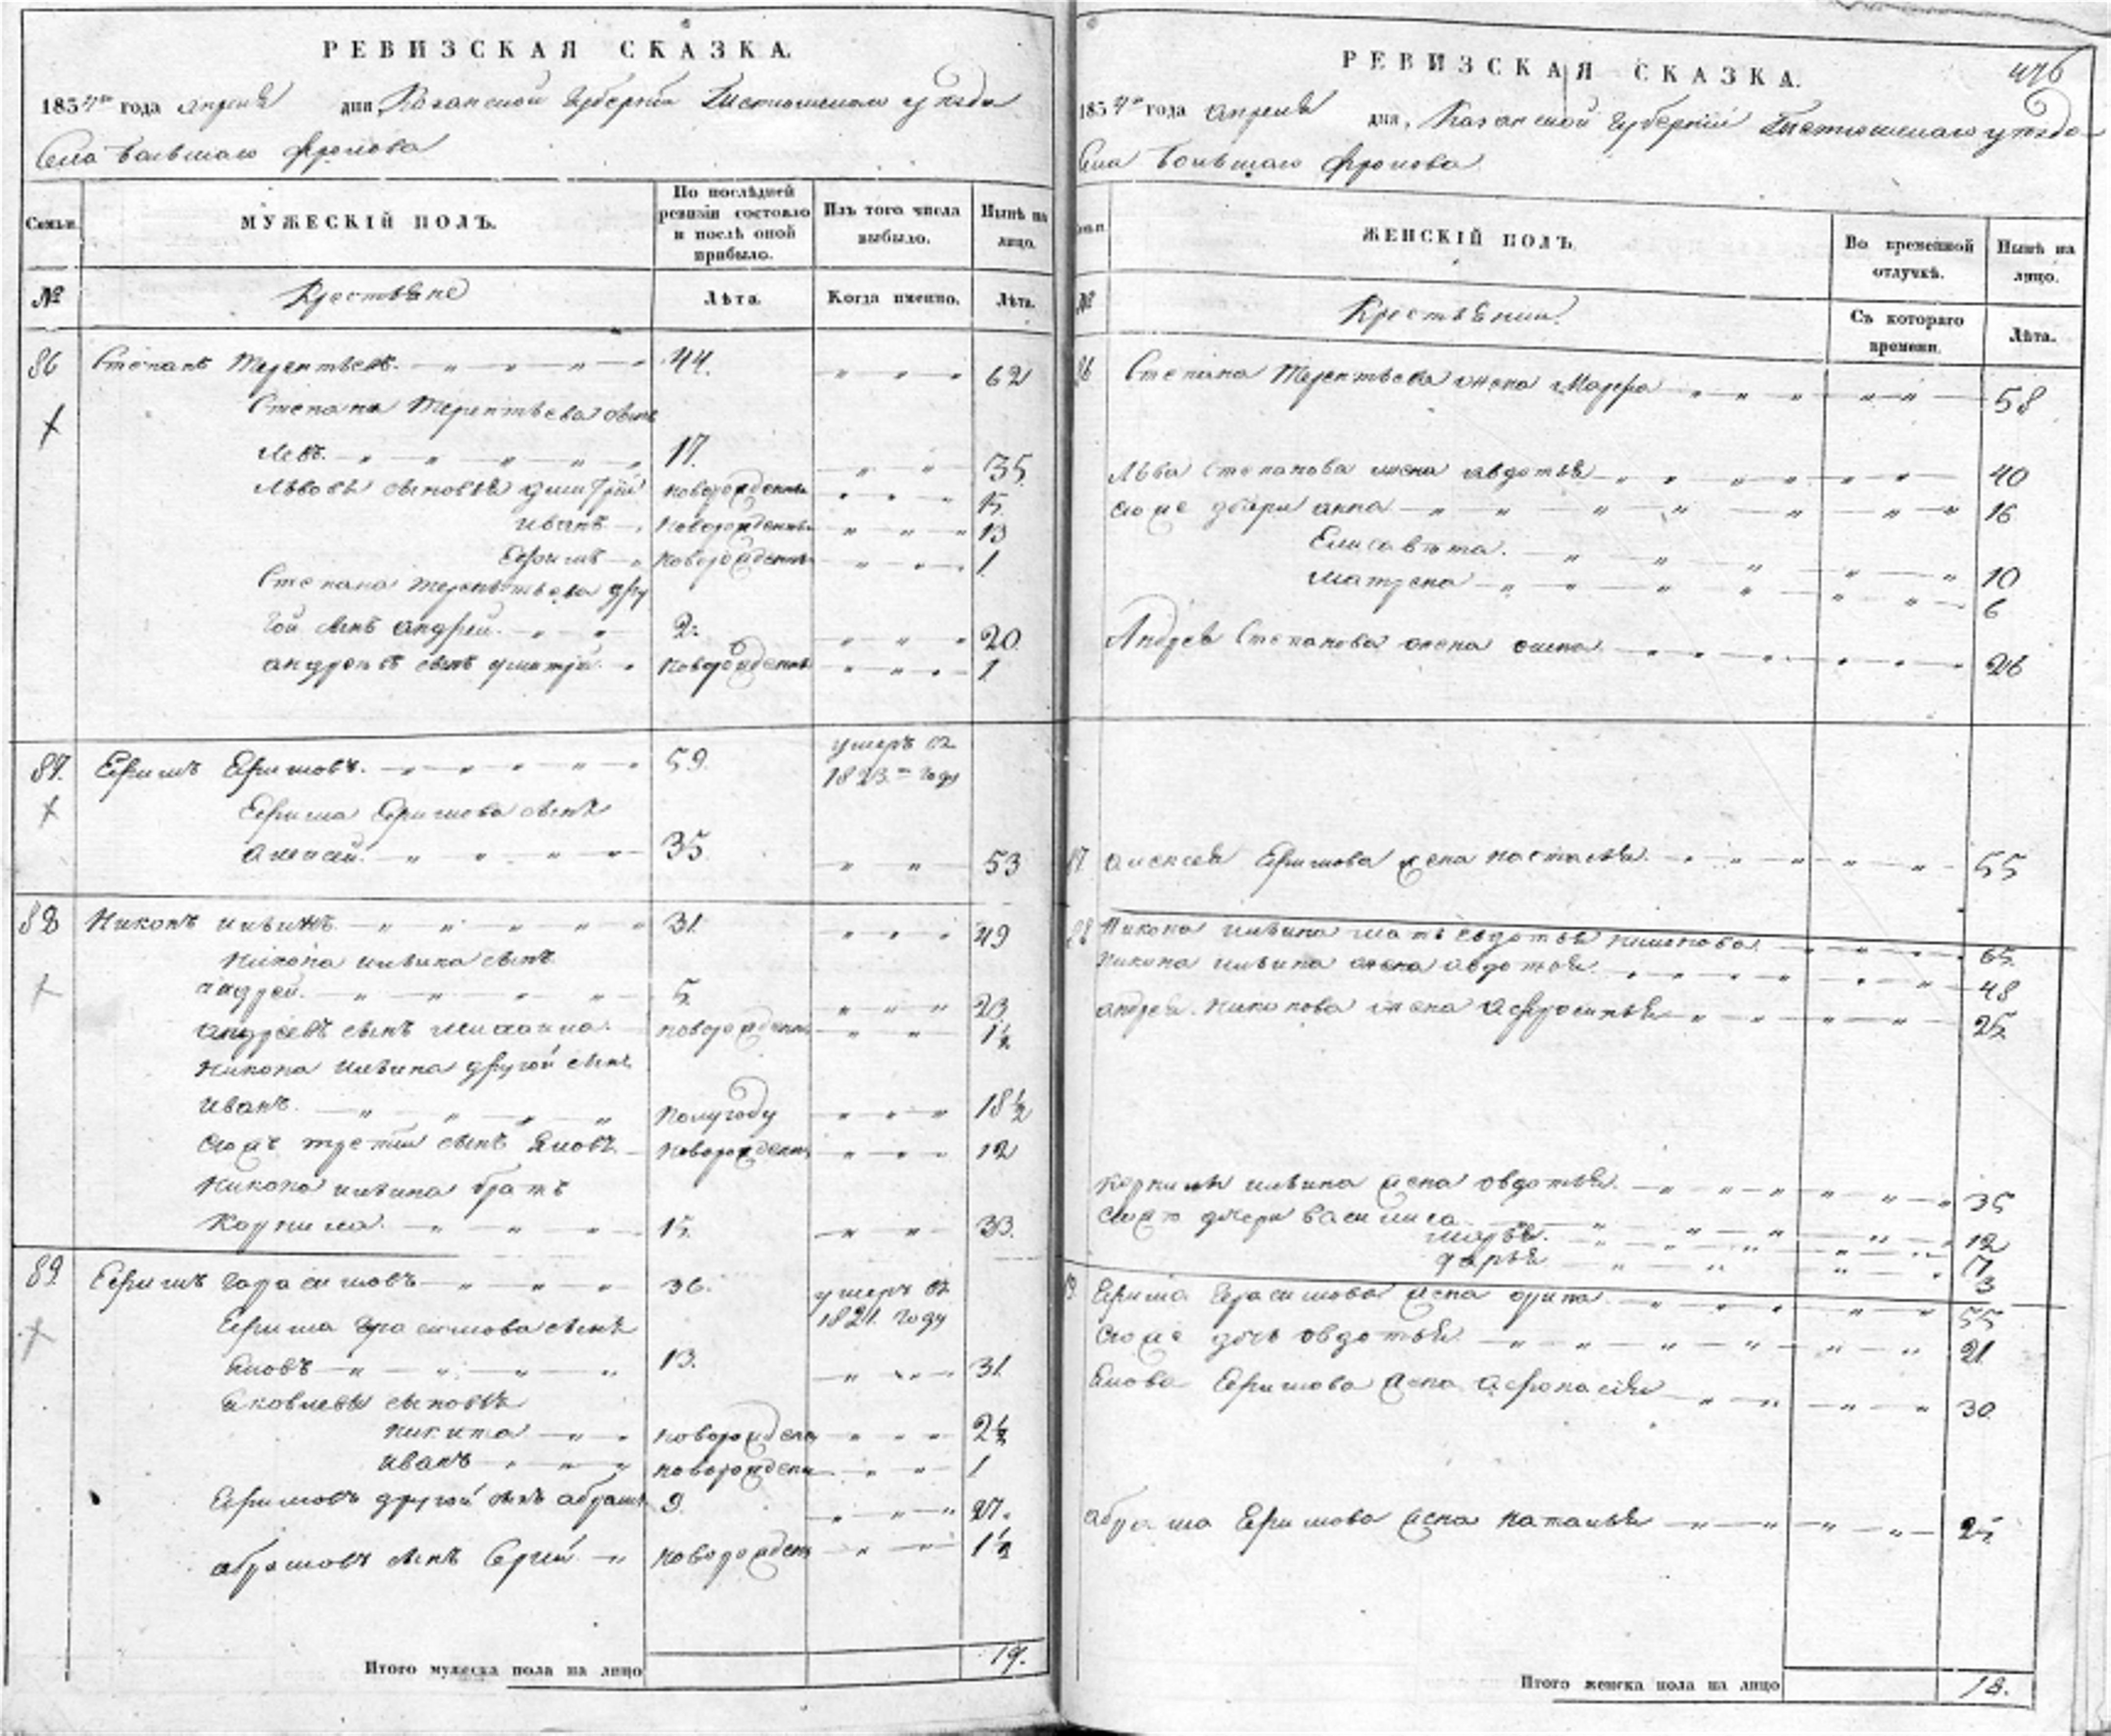 РЕВИЗСКАЯ СКАЗКА.
1834го года апреля дня, Казанской Губернии Чистопольского уезда
Села Большаго Фролова
Семьи.
МУЖЕСКІЙ ПОЛЪ.
По послѣдней ревизіи состояло и послѣ оной прибыло.
Изъ того числа выбыло.
Нынѣ на лицо.
№
Крестьяне
Лѣта.
Когда именно.
Лѣта.
86 Степанъ Терентьевъ. 44. 62
Степана Терентьева сынъ
Левъ. 17. 35
Львовы сыновья Дмитрій новорожденны 15
Иванъ новорожденны 13
Ефимъ новорожденны 1
Степана Терентьева дру
гой сынъ Андрей. 2. 20
Андреевъ сынъ Дмитрій новорожденны 1
87. Ефимъ Ефимовъ. 59. умеръ въ
1823 году
Ефима Ефимова сынъ
Алексей. 35 53
88 Никонъ Ильинъ 31. 49
Никона Ильина сынъ
Андрей. 5. 23
Андреевъ сынъ Михаила новорожденны 1½
Никона Ильина другой сынъ
Иванъ. Полугоду 18½
Ево же третій сынъ Яковъ новорожденны 12
Никона Ильина братъ
Корнила. 15. 33.
89. Ефимъ Гарасимовъ 36. умеръ въ
1821 году
Ефима Гарасимова сынъ
Яковъ 13. 31.
Яковлевы сыновья
Никита новорожден 2½
Иванъ новорожден 1
Ефимовъ другой сынъ Абрамъ 9 27.
Абрамовъ сынъ Сергей новорожден 1½
Итого мужеска пола на лицо 19.
РЕВИЗСКАЯ СКАЗКА.
476
1834го года апреля дня, Казанской Губерній Чистопольскаго уезда
Села Большаго Фролова
ЖЕНСКІЙ ПОЛЪ.
Во временной отлучкѣ.
Нынѣ на лицо.
№
Крестьянки.
Съ котораго времени.
Лѣта.
86 Степана Терентьева жена Марфа 58
Льва Степанова жена Авдотья 40
Ево же дочери Анна 16
Елисавета. 10
Матрена 6
Андрея Степанова жена 26
87 Алексея Ефимова жена Настасья. 55
88 Никона Ильина мать Евдотья 65
Никона Ильина жена Авдотья 48
Андрея Никонова жена Афросинья 25
Корнилы Ильина жена Овдотья. 35
Ево дочери Василиса 12
Марья. 7
Дарья 3
89 Ефима Герасимова жена Орина 55
Ево же дочь Овдотья 21
Якова Ефимова жена Афонасья 30
Абрама Ефимова жена Наталья 25
Итого женска пола на лицо 18.